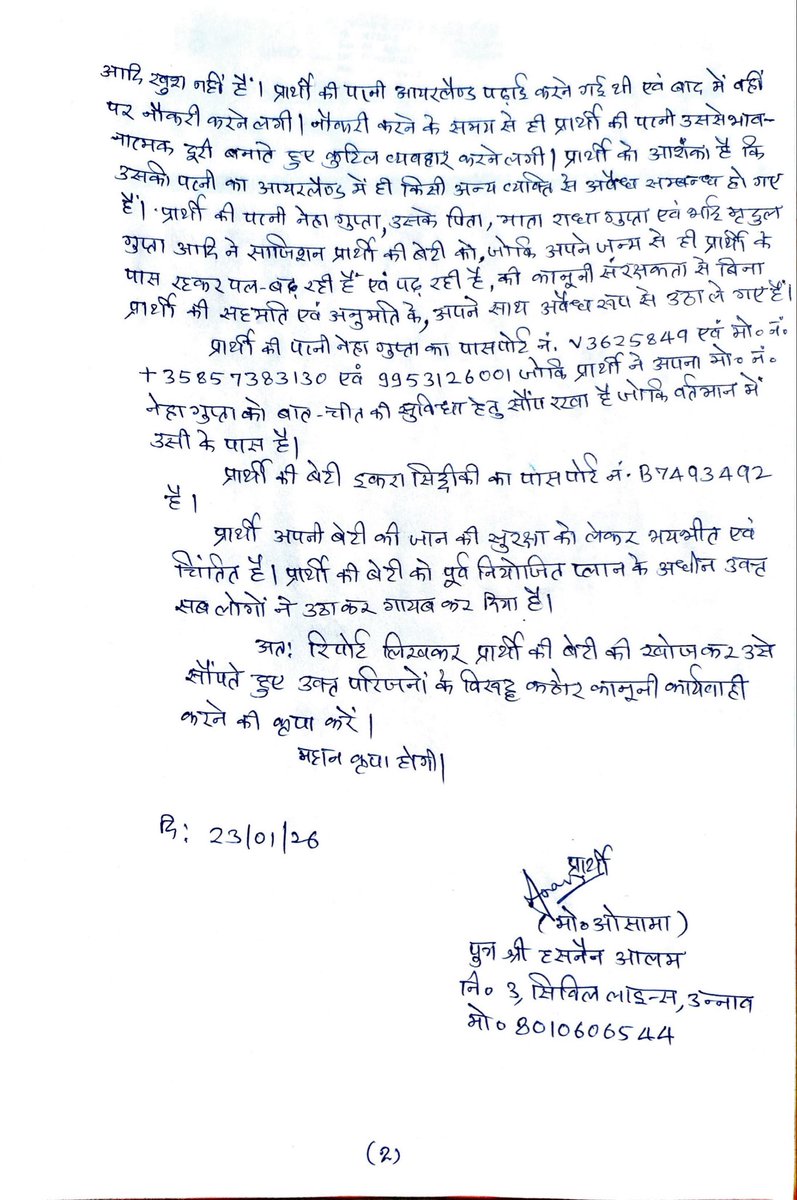 आदि खुश नहीं हैं। प्रार्थी की पत्नी आयरलैण्ड पढ़ाई करने गई थी एवं बाद में वहीं
पर नौकरी करने लगी। नौकरी करने के समय से ही प्रार्थी की पत्नी उससे भाव-
नात्मक दूरी बनाते हुए कुटिल व्यवहार करने लगी। प्रार्थी को आशंका है कि
उसकी पत्नी का आयरलैण्ड में ही किसी अन्य व्यक्ति से अवैध सम्बन्ध हो गए
हैं। प्रार्थी की पत्नी नेहा गुप्ता, उसके पिता, माता राधा गुप्ता एवं भाई मृदुल
गुप्ता आदि ने साजिशन प्रार्थी की बेटी को, जोकि अपने जन्म से ही प्रार्थी के
पास रहकर पल-बढ़ रही है एवं पढ़ रही है, की कानूनी संरक्षकता से बिना
प्रार्थी की सहमति एवं अनुमति के, अपने साथ अवैध रूप से उठा ले गए हैं।
प्रार्थी की पत्नी नेहा गुप्ता का पासपोर्ट नं. V3625849 एवं मो० नं०
+35857383130 एवं 9953126001 जोकि प्रार्थी ने अपना मो० नं०
नेहा गुप्ता को बात-चीत की सुविधा हेतु सौंप रखा है जोकि वर्तमान में
उसी के पास है।
प्रार्थी की बेटी इकरा सिद्दीकी का पासपोर्ट नं. B7493492
है।
प्रार्थी अपनी बेटी की जान की सुरक्षा को लेकर भयभीत एवं
चिंतित है। प्रार्थी की बेटी को पूर्व नियोजित प्लान के अधीन उक्त
सब लोगों ने उठाकर गायब कर दिया है।
अतः रिपोर्ट लिखकर प्रार्थी की बेटी की खोज कर उसे
सौंपते हुए उक्त परिजनों के विरुद्ध कठोर कानूनी कार्यवाही
करने की कृपा करें।
महान कृपा होगी।
दि: 23/01/26
प्रार्थी
(मो० ओसामा)
पुत्र श्री हसनैन आलम
नि० 3, सिविल लाइन्स, उन्नाव
मो० 8010606544
(2)